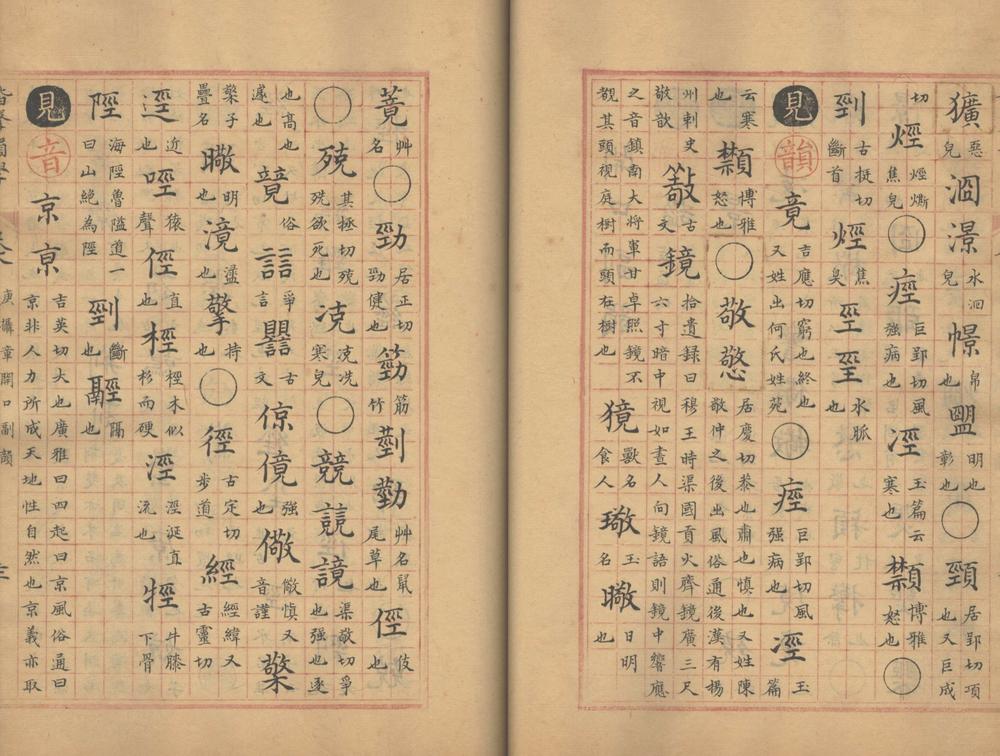 獷惡皃洄澋水洄皃幜帛也明也彰也○頸居郢切項也又巨成
切烴烴燍焦皃○痙巨郢切風强病也涇玉篇寒也博雅怒也
剄古挺切斷首烴焦臭巠坙水脈也
見韻竟吉應切窮也終也又姓出何氏姓苑○痙巨郢切風强病也涇玉篇
云寒也博雅怒也○敬憼居慶切恭也肅也慎也又姓陳敬仲之後出風俗通後漢有揚
州刺史敬歆古文鏡拾遺録曰穆王時渠國貢火齊鏡廣三尺六寸暗中視如晝人向鏡語則鏡中響應
之音鎮南大將軍甘卓照鏡不覩其頭視庭樹而頭在樹也獍獸名食人璥玉名曔日明也
艸名○勁居正切勁健也筋竹葝艸名鼠尾草也俓伎也
○殑其拯切殑殑欲死也寒皃○競竸渠敬切爭也强也逐
也高也遽也竟俗誩爭言古文倞傹强也儆儆慎又音謹檠
檠子罍名曔明也滰也擎持也○徑古定切步道經經緯又古靈切
逕近也猿聲也俓直也桱桱木似杉而硬涇涇涏直流也牼牛膝下骨
陘海陘魯隘道一曰山絕為陘剄斷也隔也
見音京亰吉英切大也廣雅曰四起曰京風俗通曰京非人力所成天地性自然也京義亦取
庚攝章開口副韻